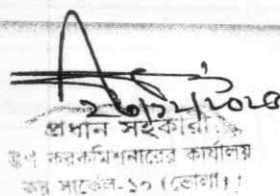 ২৩/১২/২০২৪
প্রধান সহকারী
উপ করকমিশনারের কার্যালয়
কর সার্কেল-১০ (ভোলা)।